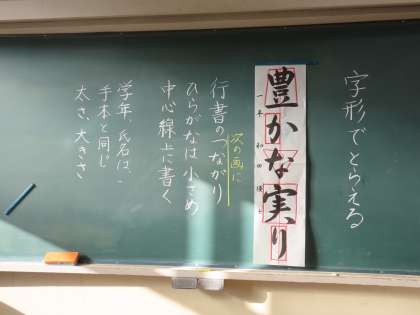 字形でとらえる
豊かな実り
行書のつながり
次の画に
ひらがなは小さめ
中心線上に書く
学年、氏名は、
手本と同じ
太さ、大きさ